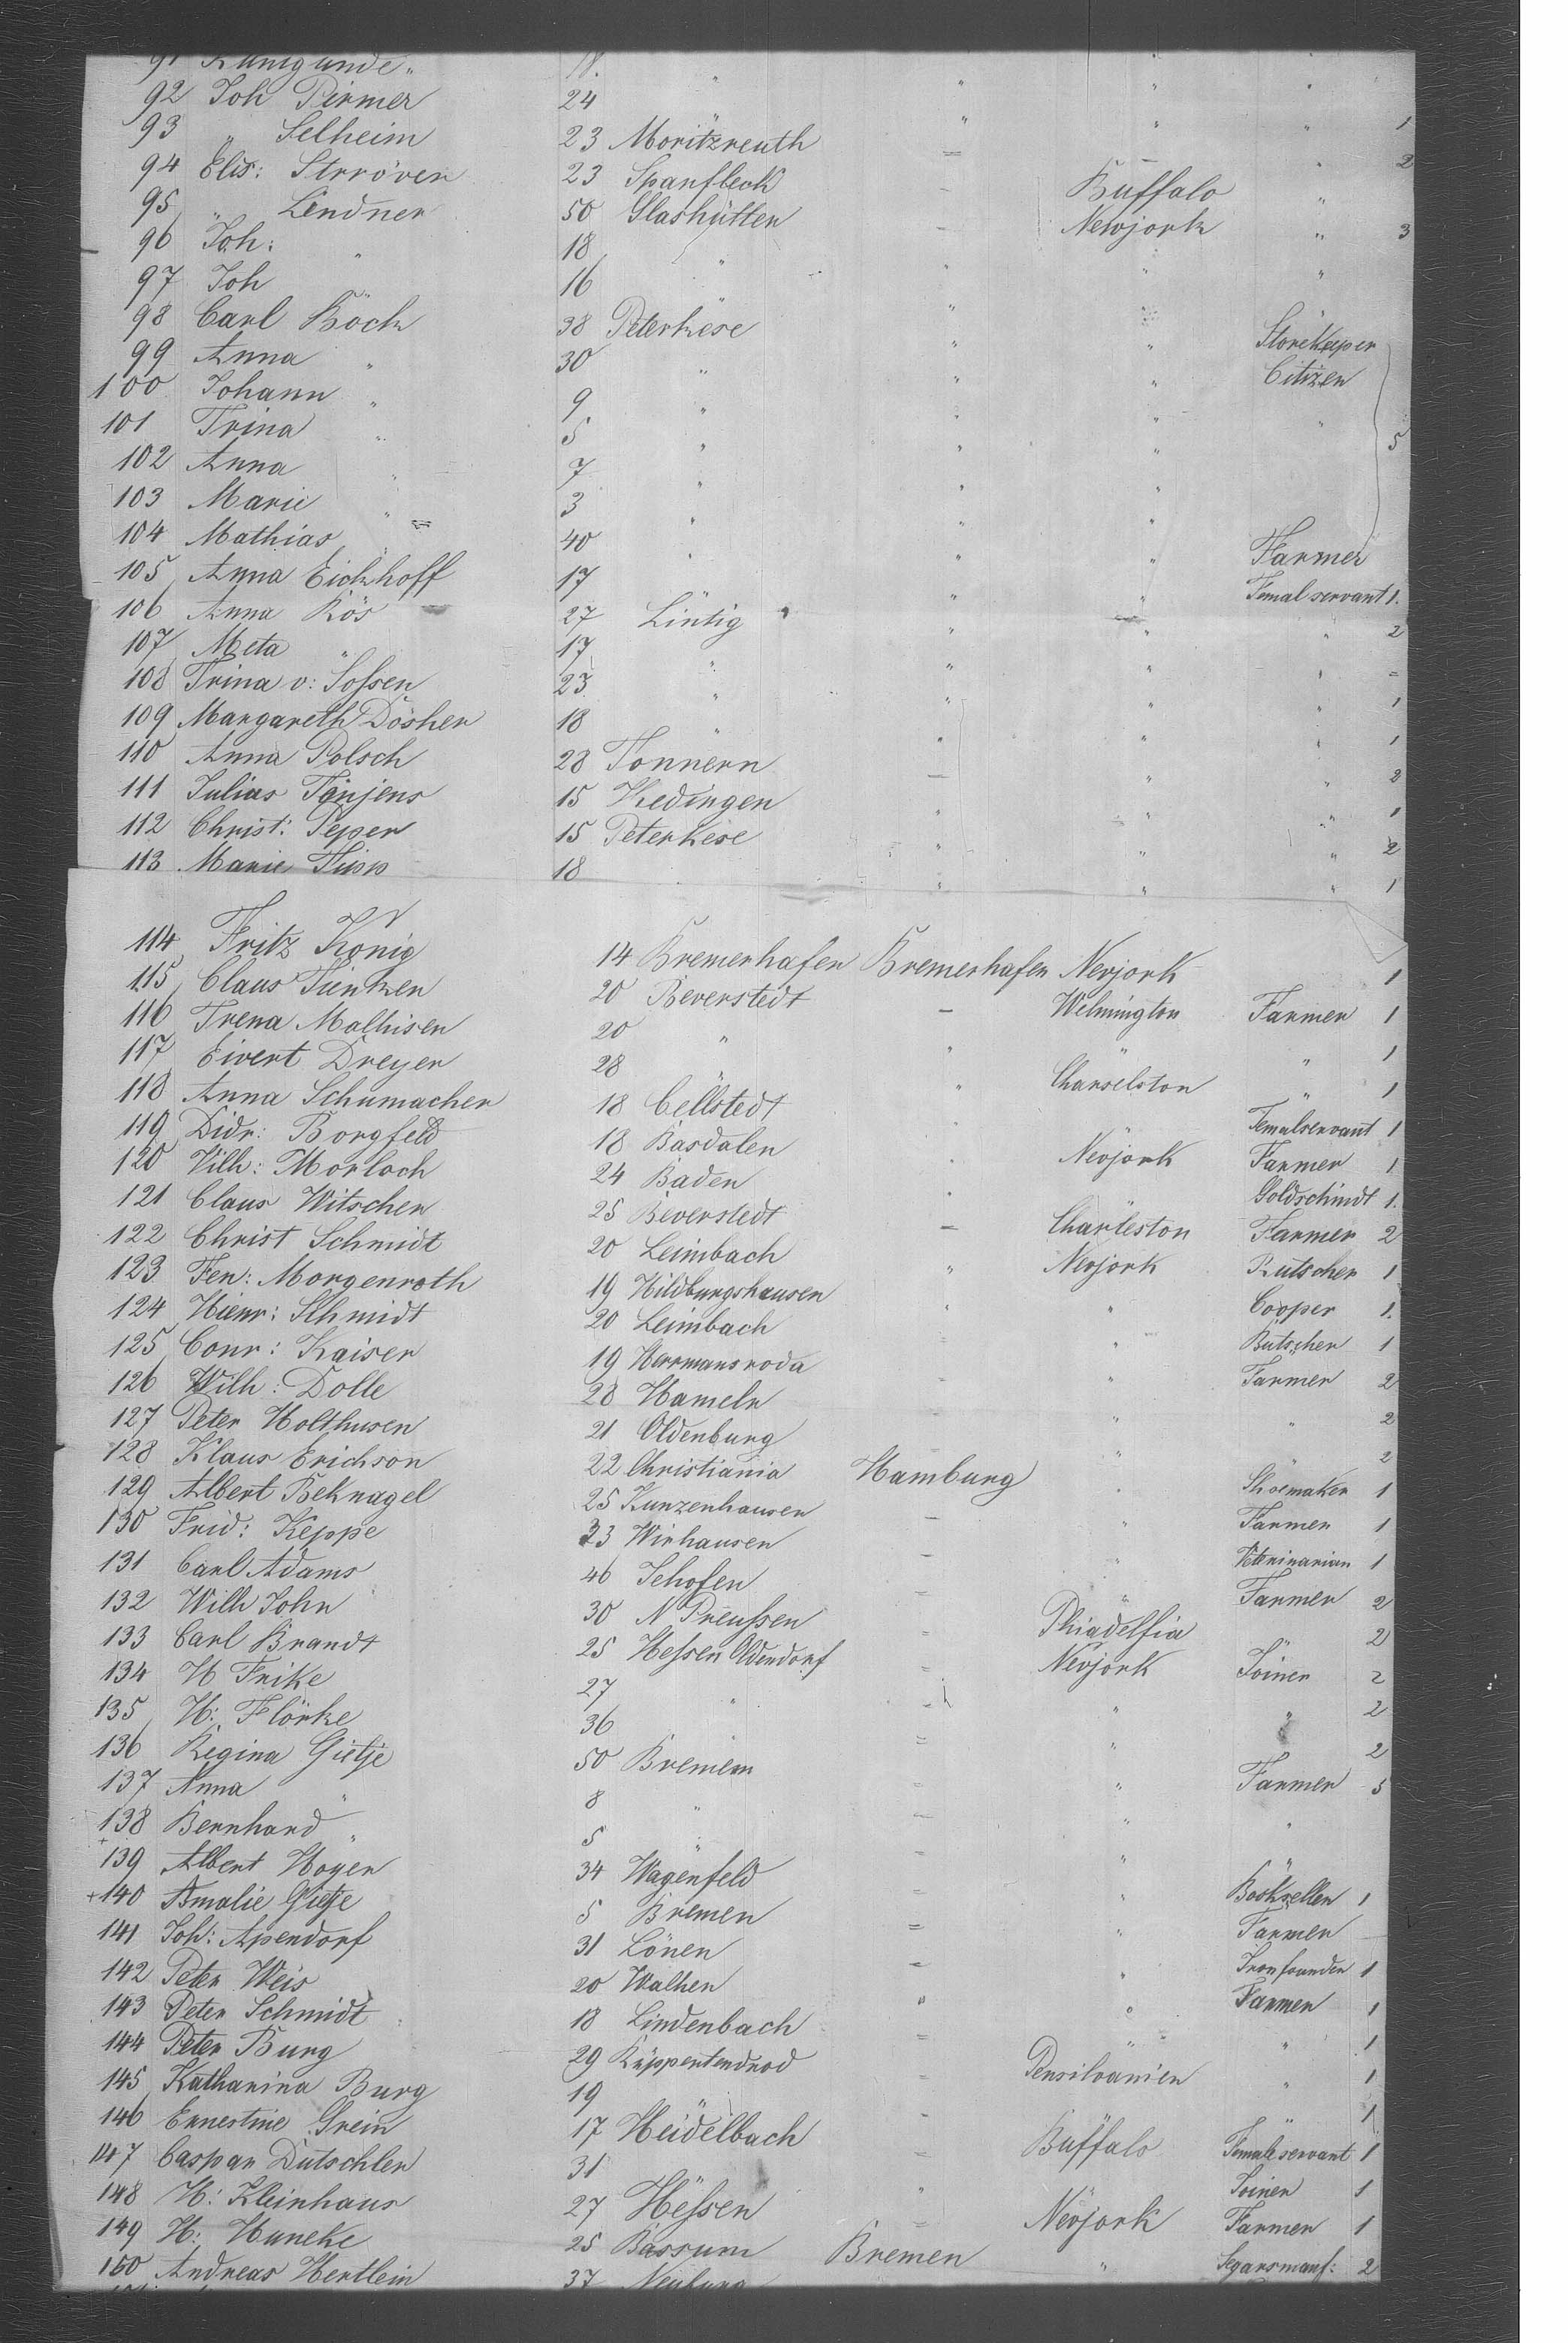 91 Kunigunde " 18. " " " "
92 Joh Pirmer 24 " " " " 1
93 " Selheim 23 Moritzreuth = — " 2
94 Elis: Strröver 23 Spanfleck - Buffalo "
95 " Lendner 50 Glashütten - Newjork " 3
96 Joh: " 18 " " " "
97 Joh " 16 " "
98 Carl Köck 38 Peterkese " " Storekeeper
99 Anna " 30 " " " Citizen
100 Johann " 9 " " " "
101 Trina " 5 " " " 5
102 Anna " 7 " " "
103 Marie " = 3 " " "
104 Mathias " 40 " " " Farmer
105 Anna Eickhoff 17 " " Femal servant 1.
106 Anna Kös 27 Lintig " " " 2
107 Meta " 17 " " " " =
108 Trina v: Sossen 23 " " " " 1
109 Margareth Dösher 18 " " " " 1
110 Anna Polsch 28 Tonnern — " " 2
111 Julias Tinjens 15 Kedingen " " " 1
112 Christ: Peper 15 Peterkese " " " 2
113 Marie Tupp 18 " " " 1
114 Fritz König 14 Bremerhafen Bremerhafen Nevjork 1
115 Claus Tienken 20 Beverstedt — Welmington Farmer 1
116 Trena Malhisen 20 " " " " 1
117 Eivert Dreyer 28 " " Charselston " 1
118 Anna Schumacher 18 Cellstedt " Femalservant 1
119 Didr: Borgfeld 18 Basdalen " Nevjork Farmer 1
120 Vilh: Morlock 24 Baden " Goldschmidt 1.
121 Claus Witschen 25 Beverstedt — Charleston Farmer 2
122 Christ Schmidt 20 Leimbach " Nevjork Kutscher 1
123 Fer: Morgenroth 19 Hildburgshausen " " Cooper 1.
124 Hienr: Schmidt 20 Leimbach " " Butscher 1
125 Conr: Kaiser 19 Herrmansroda - " Farmer 2
126 Wilh: Dolle 28 Hameln - " " 2
127 Peter Holthusen 21 Oldenburg - " 2
128 Klaus Erichson 22 Christiania Hamburg " Shoemaker 1
129 Albert Beknagel 25 Kunzenhausen — " Farmer 1
130 Frid: Keppe 33 Wirhausen — " Veterinarian 1
131 Carl Adams 46 Ichofen - " Farmer 2
132 Wilh John 30 N Preussen = Phiadelfia " 2
133 Carl Brandt 25 Hessen Oldendorf = Nevjork Joiner 2
134 H Frike 27 " - " " 2
135 H: Flörke 36 " = " " 2
136 Regina Gietje 50 Bremem - " Farmer 5
137 Anna " 8 " — " "
138 Bernhard " 5 " - " "
139 Albert Hoyer 34 Wagenfeld = " Bookseller 1
140 Amalie Gietje 5 Bremen = " Farmer
141 Joh: Apendorf 31 Lönen = " Ironfounder 1
142 Peter Weis 20 Walher " " Farmer 1
143 Peter Schmidt 18 Lindenbach = " " 1
144 Peter Burg 29 Küppentendrod - Pensilvanien " 1
145 Katharina Burg 19 " - " " 1
146 Ernestine Grein 17 Heidelbach = Buffalo Female servant 1
147 Caspar Dutschler 31 " " " Joiner 1
148 H: Kleinhaus 27 Hessen = Nevjork Farmer 1
149 H: Huneke 25 Bassum Bremen " Segarsmanf: 2
150 Andreas Hertlein 37 Neuburg